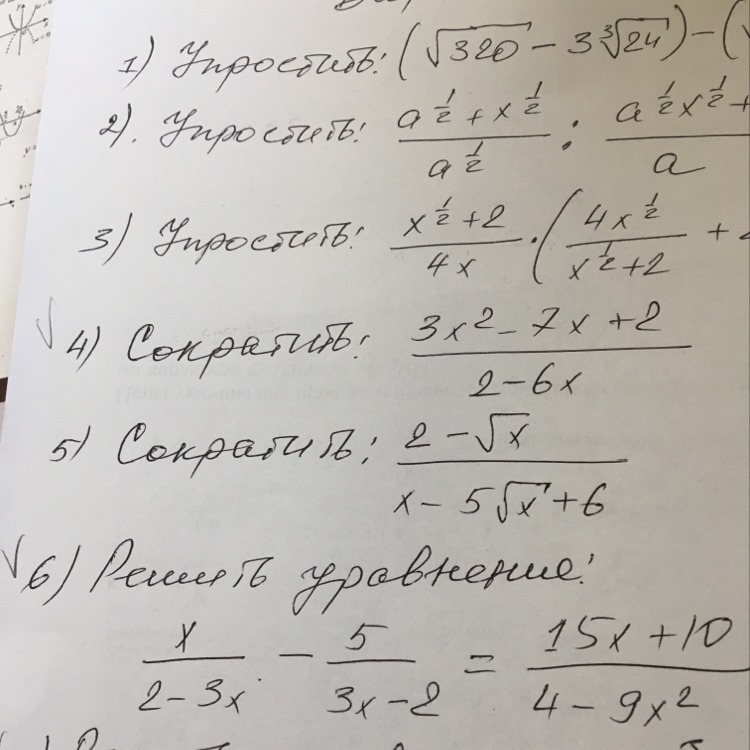 1) Упростить: (√320 - 3∛24) - (√
2). Упростить: (a^(1/2) + x^(1/2))/a^(1/2) : (a^(1/2)x^(1/2) +)/a
3) Упростить: (x^(1/2) + 2)/(4x) · ((4x^(1/2))/(x^(1/2) + 2) +
√ 4) Сократить: (3x² - 7x + 2)/(2 - 6x)
5) Сократить: (2 - √x)/(x - 5√x + 6)
√ 6) Решить уравнение:
x/(2 - 3x) - 5/(3x - 2) = (15x + 10)/(4 - 9x²)